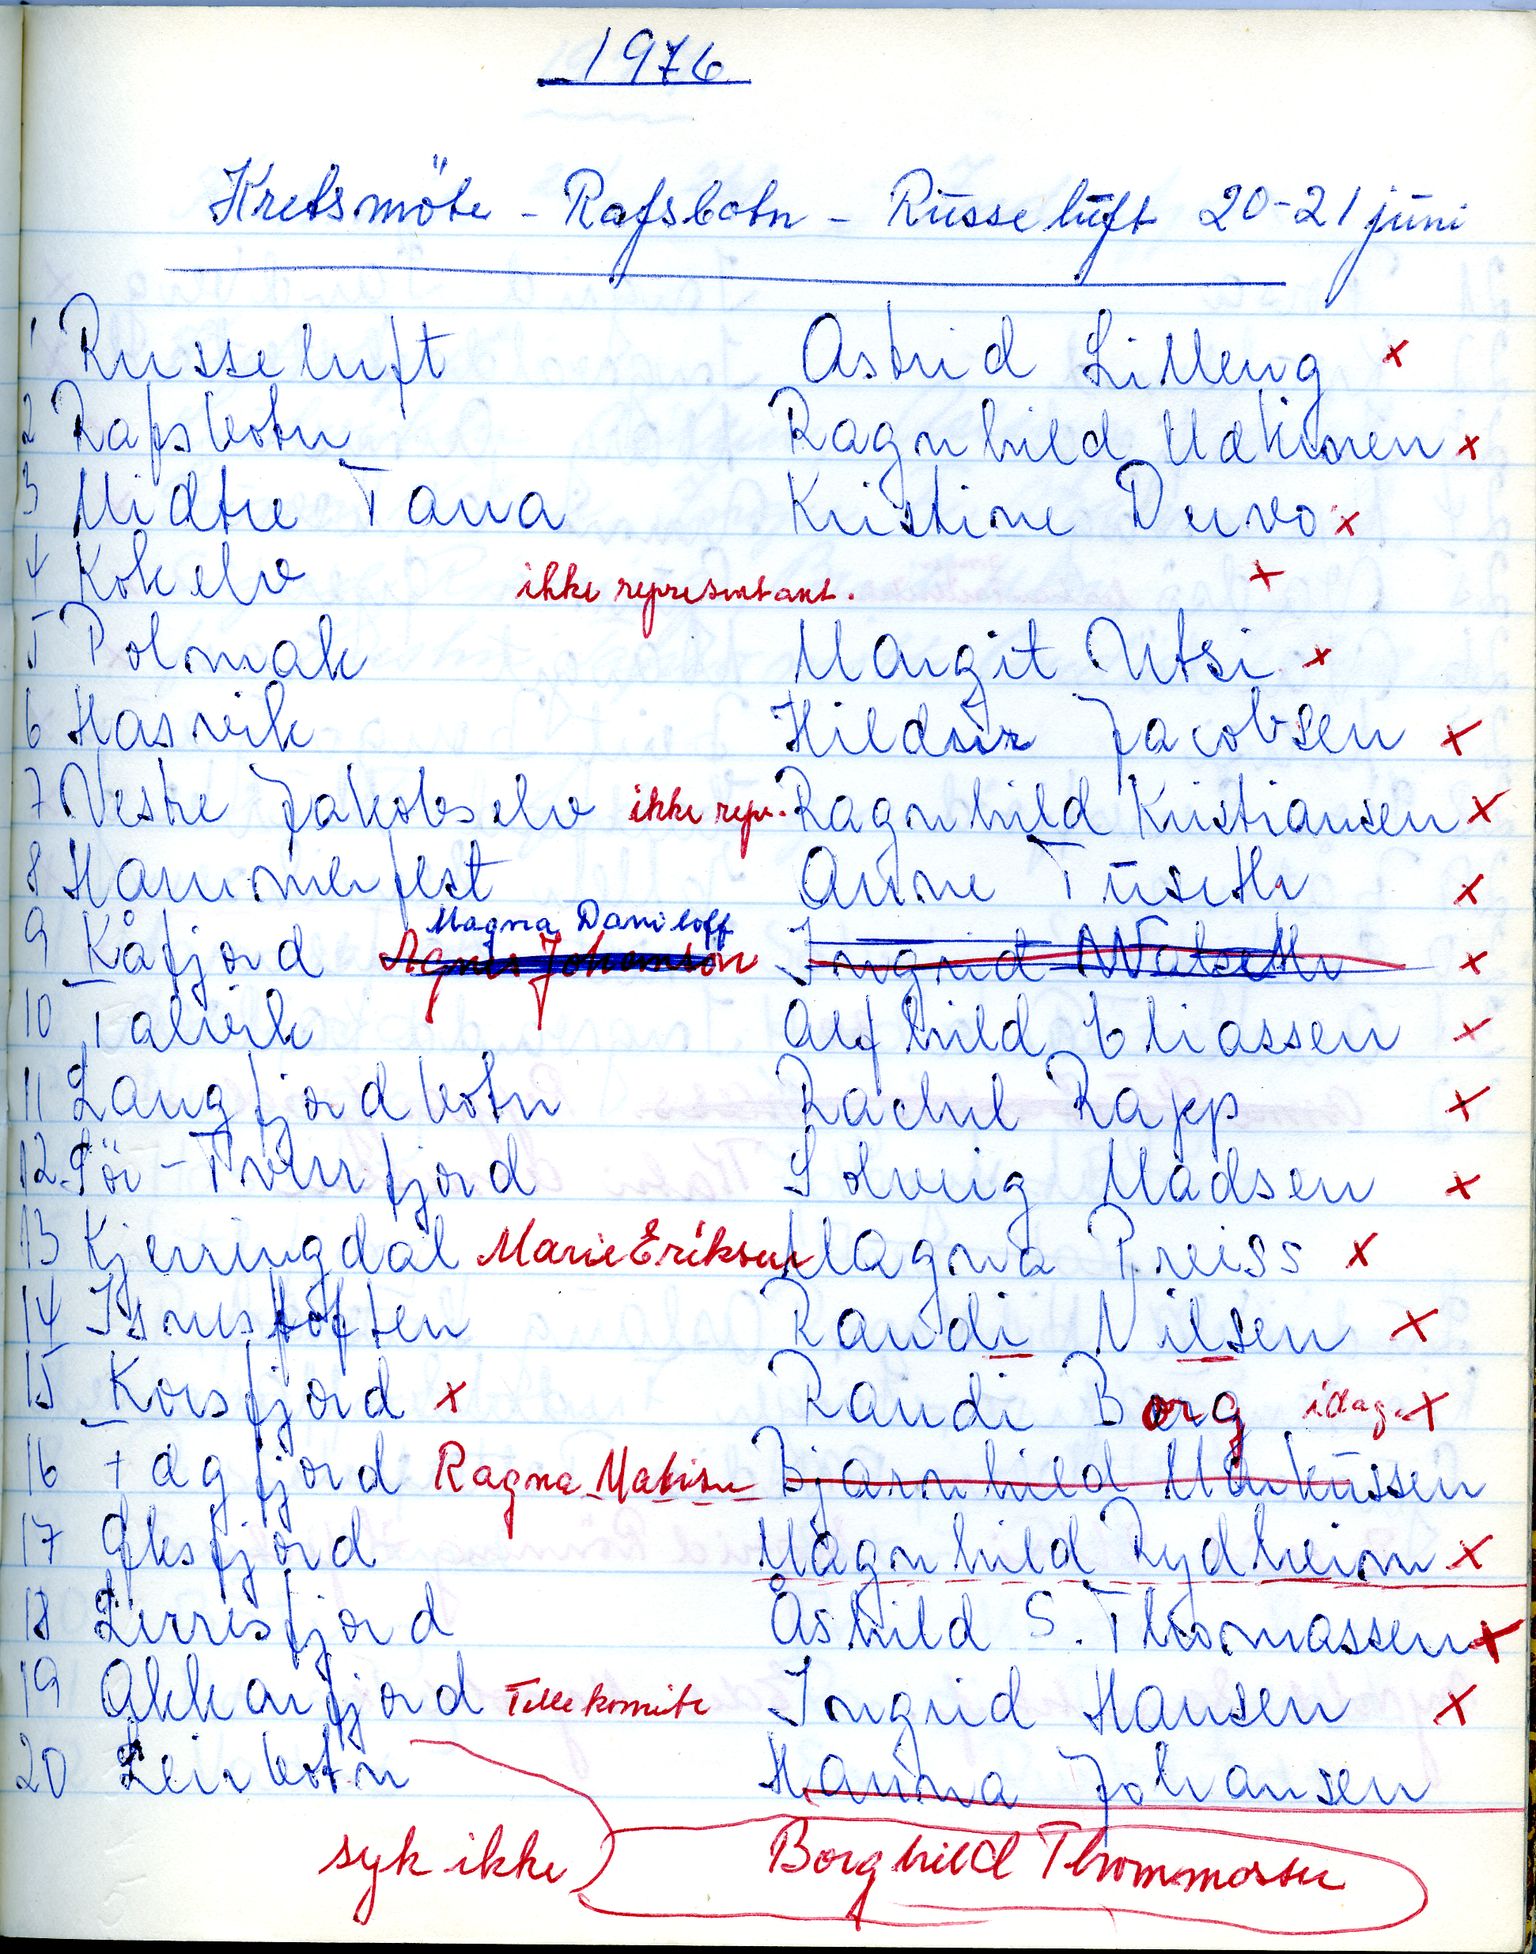 1976
Kretsmöte - Rafsbotn - Russeluft 20-21 juni
1 Russeluft Astrid Lilleng x
2 Rafsbotn Ragnhild Mathisen x
3 Midtre Tana Kristine Dervo x
4 Kokelv ikke representant. x
5 Polmak Margit Utsi x
6 Hasvik Hildur Jacobsen x
7 Vestre Jakobselv ikke repr. Ragnhild Kristiansen x
8 Hammerfest Anne Tuseth x
Magna Daniloff
9 Kåfjord Agnes Johanson Ingrid x
10 Talvik Alfhild Eliassen x
11 Langfjordbotn Rachel Rapp x
12. Sör-Tverrfjord Solveig Madsen x
13 Kjerringdal Marie Eriksen Magna Preiss x
14 Isnestoften Randi Nilsen x
15 Korsfjord x Randi Borg idag. x
16 Tagfjord Ragna Bjarnhild Markussen
17 Öksfjord Magnhild Rydheim x
18 Lerresfjord Åshild S. Thomassen x
19 Akkarfjord Tellekomite Ingrid Hansen x
20 Leirbotn Hanna Johansen
syk ikke Borghild Thommassen